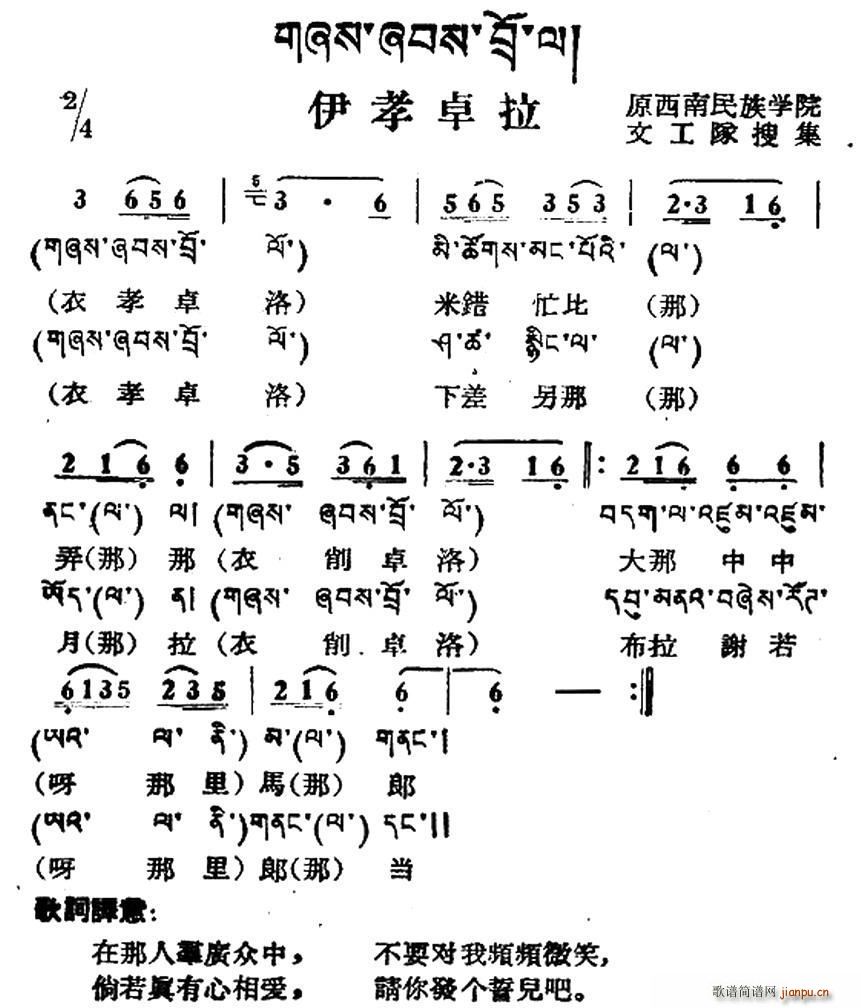 གཞས་ཞབས་བྲོ་ལ།
2/4
伊孝卓拉
原西南民族学院
文工隊搜集
3 6 5 6 | 5 七 3 · 6 | 5 6 5 3 5 3 | 2·3 1 6 |
(གཞས་ཞབས་བྲོ་ ལོ་) མི་ཚོགས་མང་པོའི་ (ལ་)
(衣孝卓洛) 米錯忙比 (那)
(གཞས་ཞབས་བྲོ་ ལོ་) ཤ་ཚ་ སྙིང་ལ་ (ལ་)
(衣孝卓洛) 下差另那 (那)
2 1 6 6 | 3·5 3 6 1 | 2·3 1 6 :: 2 1 6 6 6 |
ནང་(ལ་) ལ། (གཞས་ ཞབས་བྲོ་ ལོ་) བདག་ལ་འཛུམ་འཛུམ་
弄(那) 那 (衣削卓洛) 大那中中
ཡོད་(ལ་) ན། (གཞས་ ཞབས་བྲོ་ ལོ་) དབུ་མནའ་བཞེས་རོཊ་
月(那) 拉 (衣削卓洛) 布拉謝若
6 1 3 5 2 3 5 | 2 1 6 6 | 6 — :|
(ཨའ་ ལ་ ནི་) མ་(ལ་) གནང་།
(呀那里) 馬(那) 郎
(ཨའ་ ལ་ ནི་) གནང་(ལ་) དང་།།
(呀那里) 郎(那) 当
歌詞譯意:
在那人羣廣众中， 不要对我頻頻微笑，
倘若眞有心相爱， 請你發个誓兒吧。
歌谱简谱网
jianpu.cn